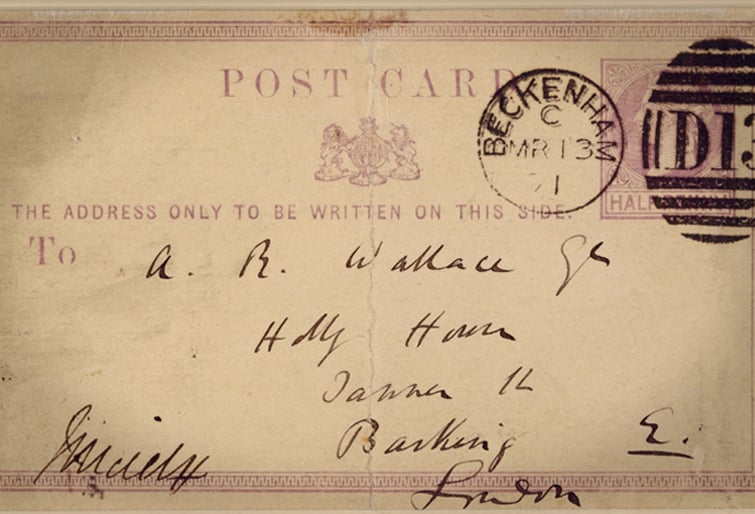 POST CARD
BECKENHAM
C
MR 13
71
D13
HALF
THE ADDRESS ONLY TO BE WRITTEN ON THIS SIDE.
To
A. R. Wallace
Holly House
Tanner St
Barking E.
London